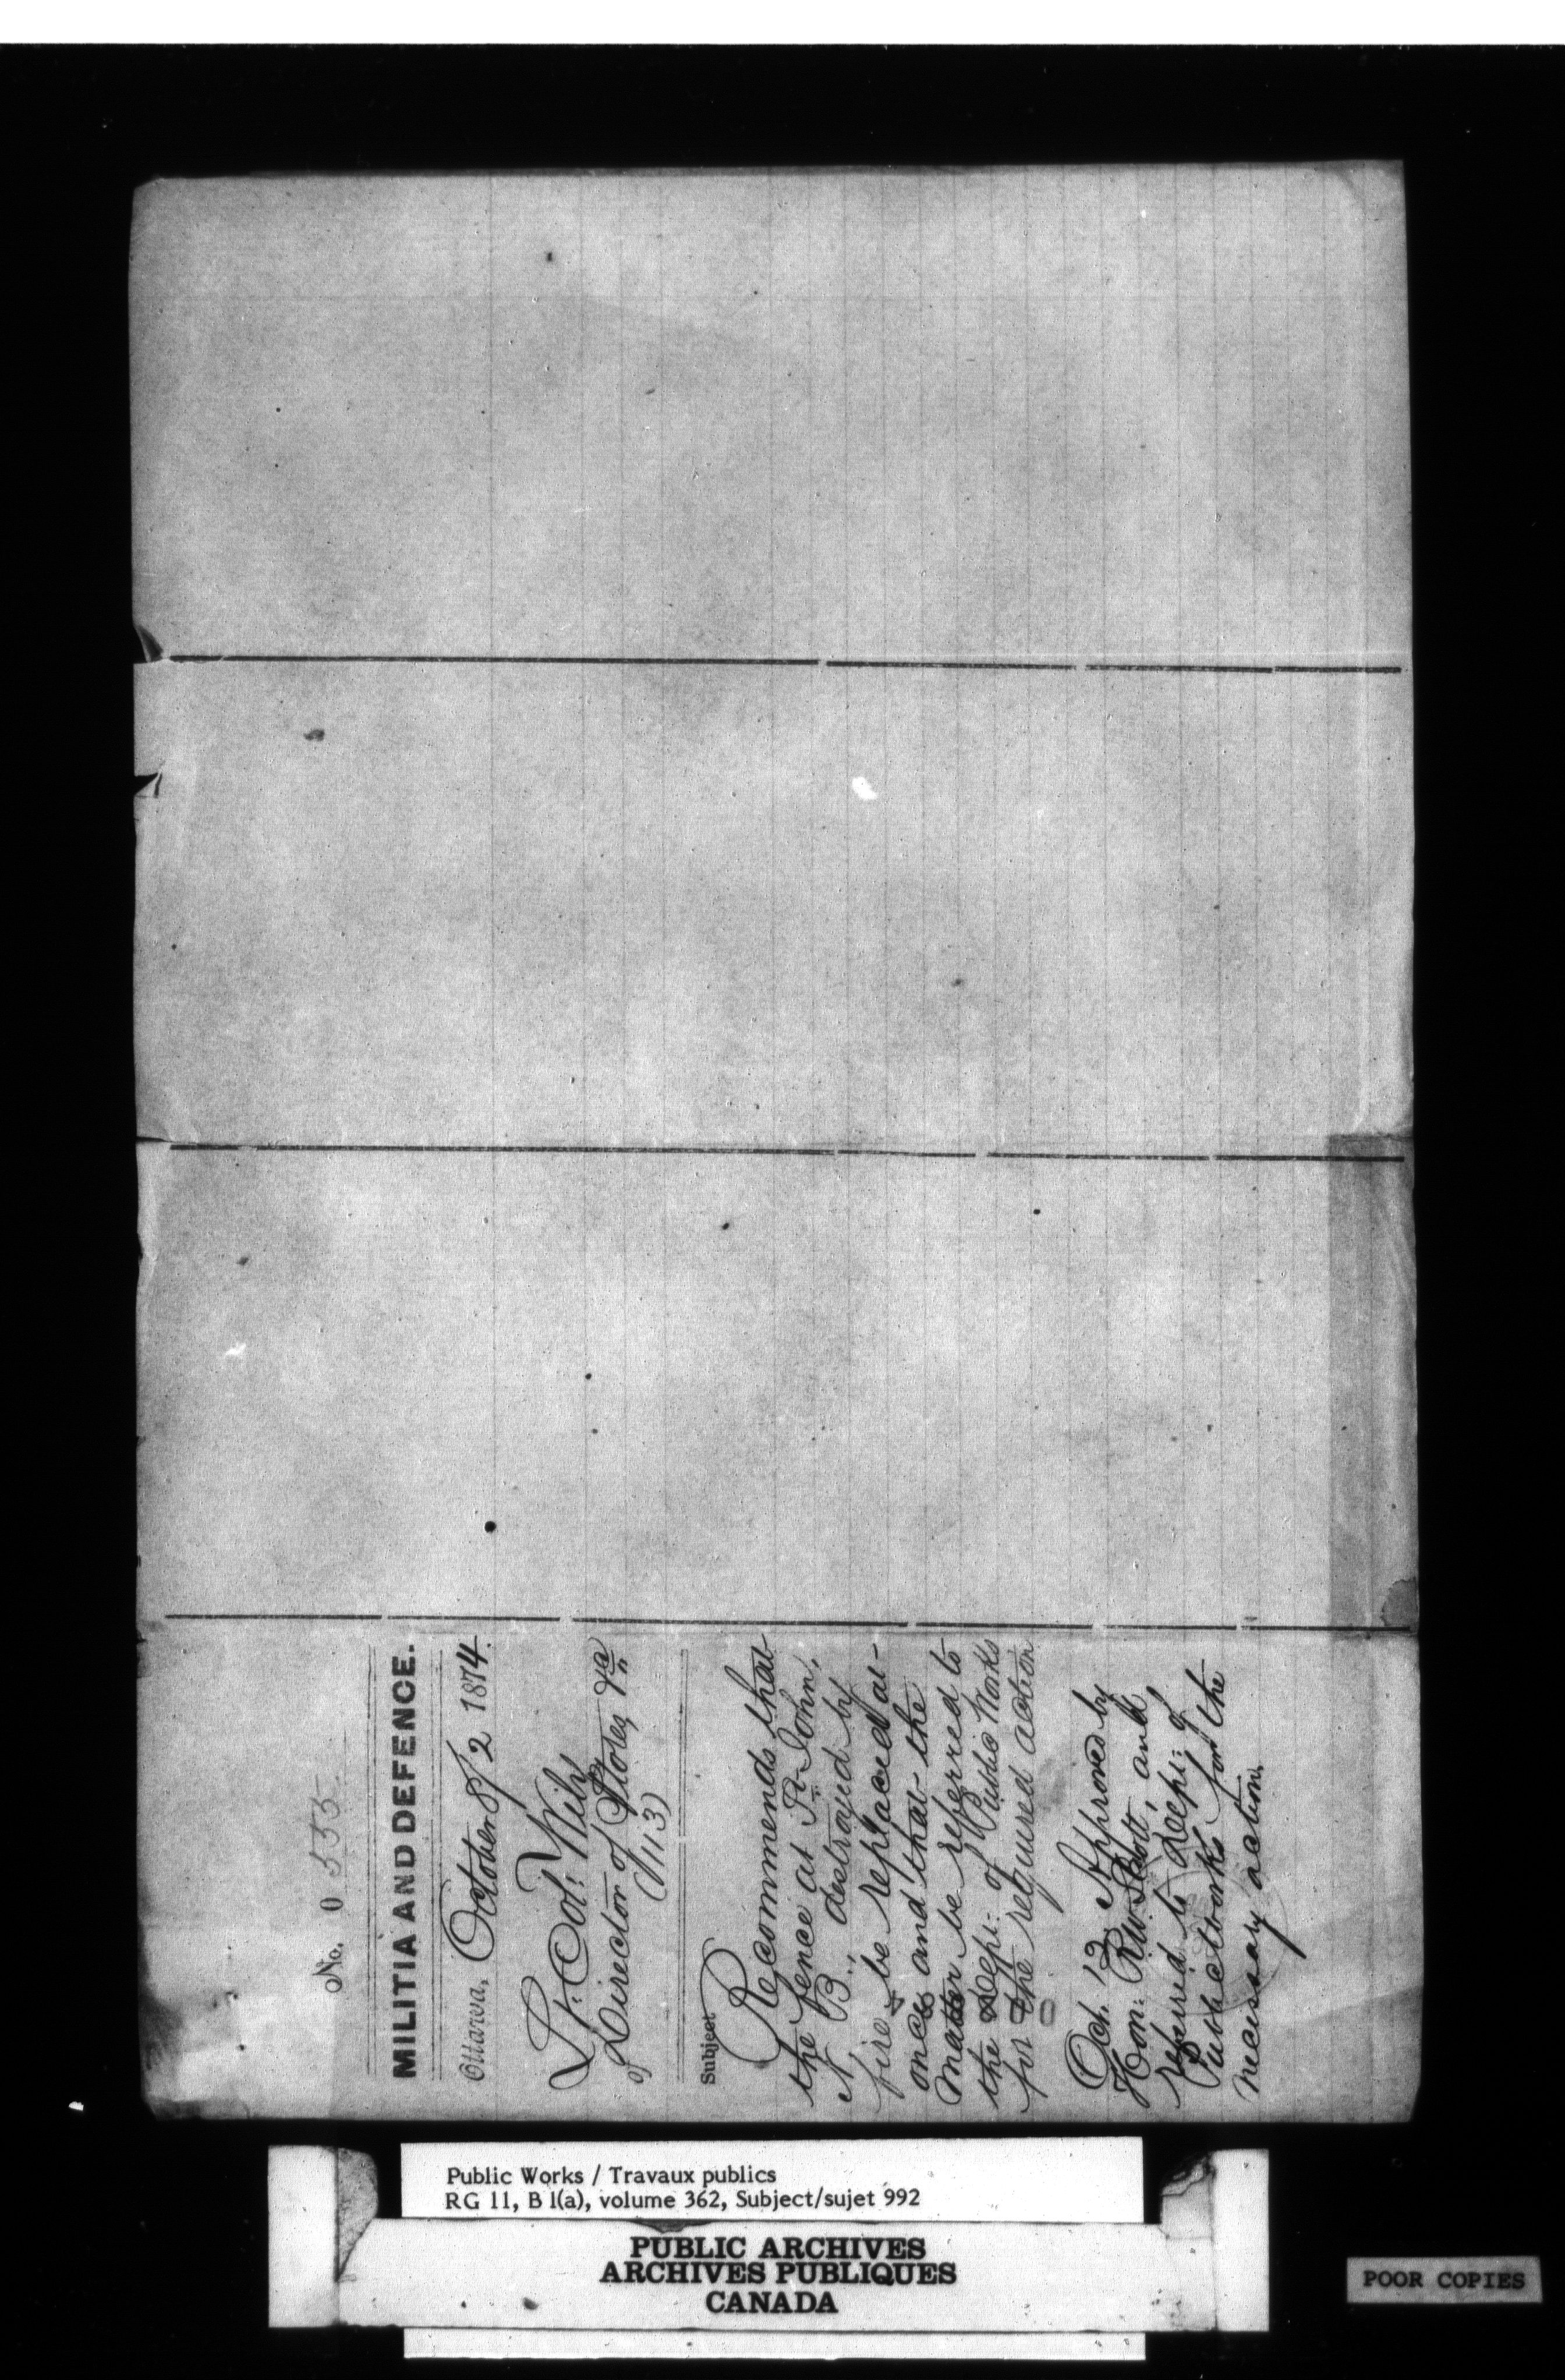 No. 0 555
MILITIA AND DEFENCE.
Ottawa, October 8/2 1874.
Lt. Col: Wily
Director of Stores, &a
(113)
Subject
Recommends that
the fence at St. John,
N. B., destroyed by
fire be replaced at
once and that the
matter be referred to
the Dept: of Public Works
for the required action
Oct. 13 Approved by
Hon: R.W. Scott, and
referred to Dept: of
Public Works for the
necessary action.
Public Works / Travaux publics
RG 11, B 1(a), volume 362, Subject/sujet 992
PUBLIC ARCHIVES
ARCHIVES PUBLIQUES
CANADA
POOR COPIES